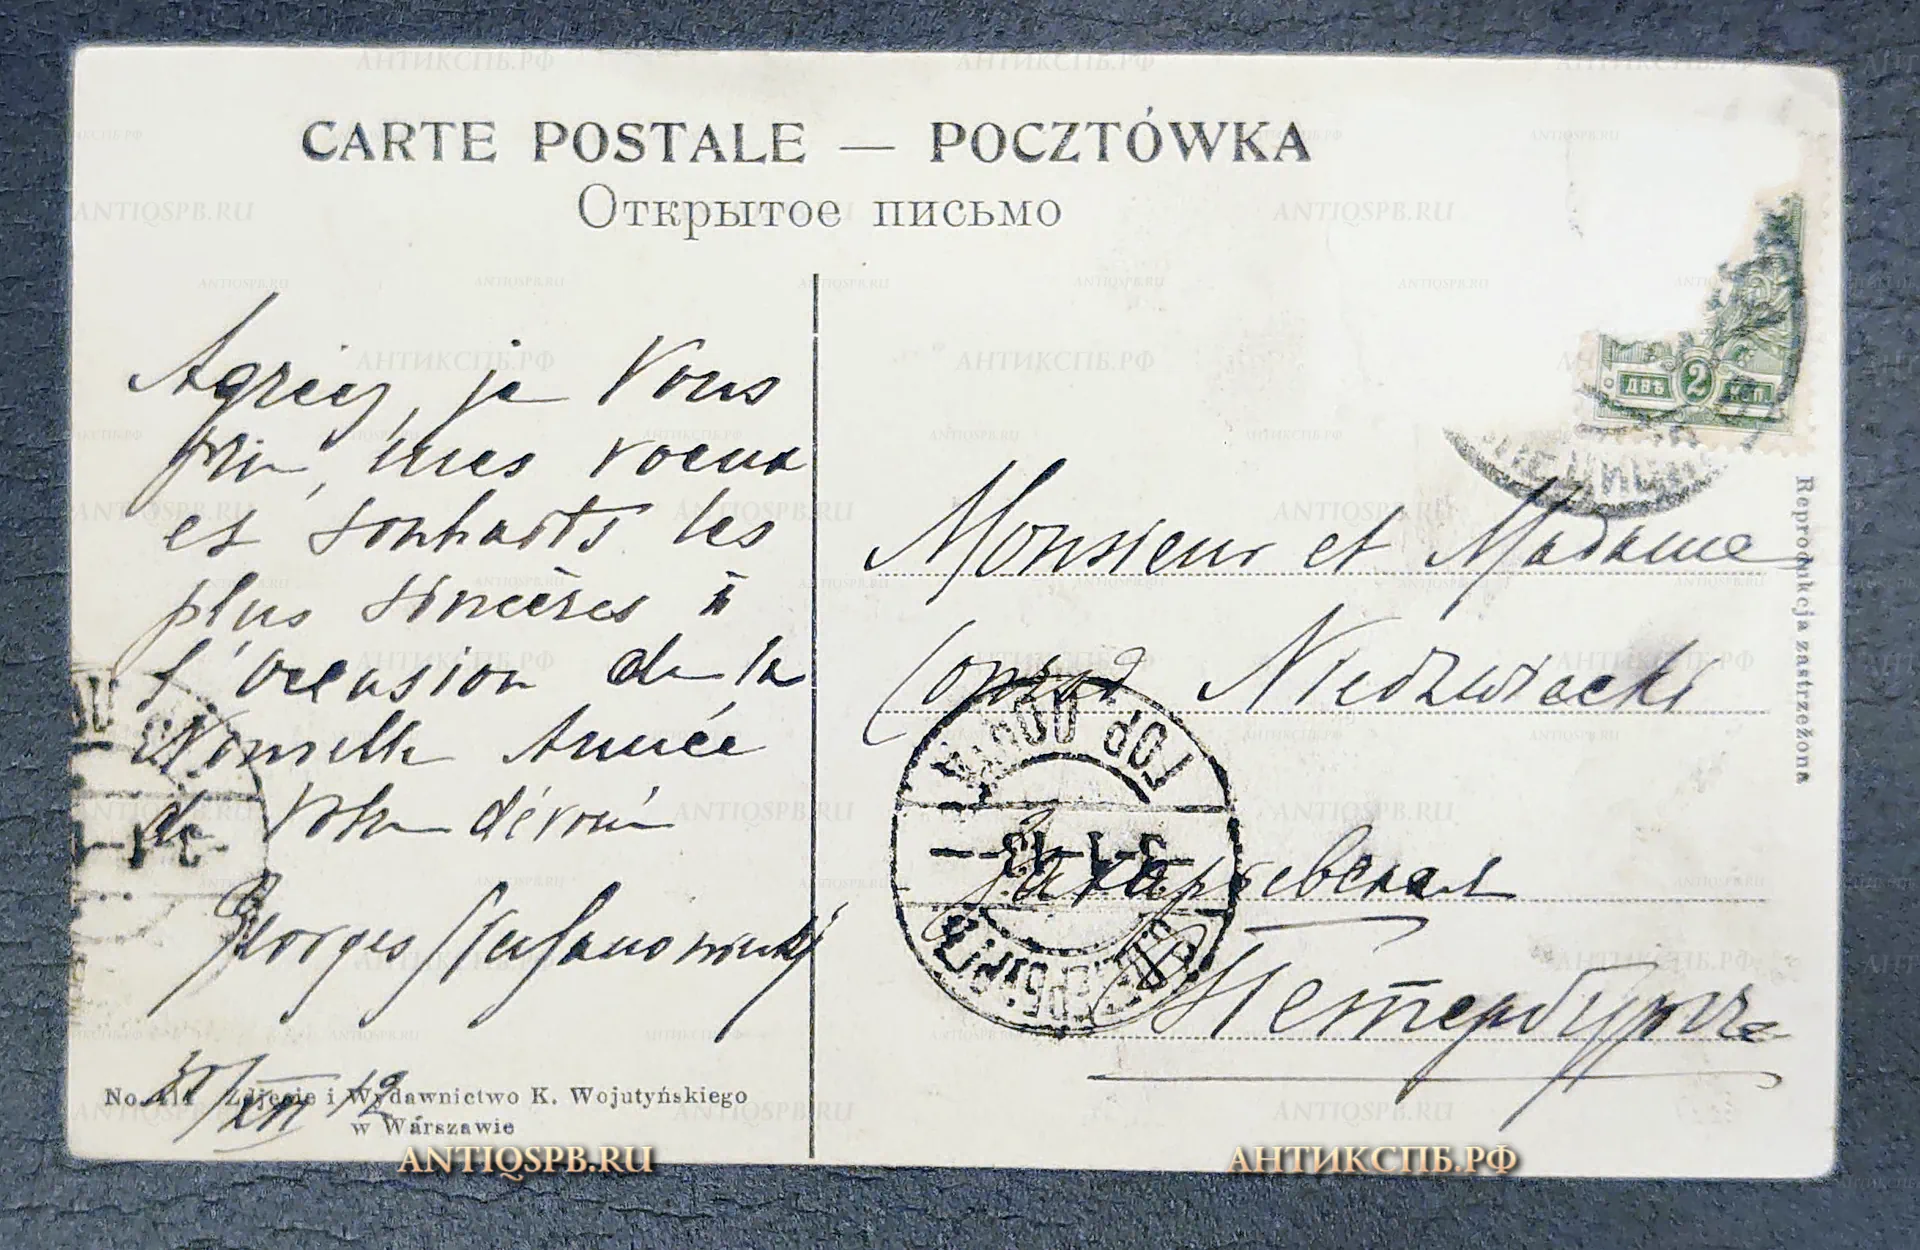 CARTE POSTALE — POCZTÓWKA
Открытое письмо
Agréez, je Vous
prie, mes voeux
et souhaits les
plus sincères à
l'occasion de la
Nouvelle Année
de Votre dévoué
Georges Stefanowski
31/XII 12
No. Zdjęcie i Wydawnictwo K. Wojutyńskiego
w Warszawie
ДВѢ 2 КОП
Monsieur et Madame
Conrad Niedzwiecki
Захарьевская
Петербургъ
Reprodukcja zastrzeżona
ГОР. ПОЧТА
3-1-13
ANTIQSPB.RU
АНТИКСПБ.РФ